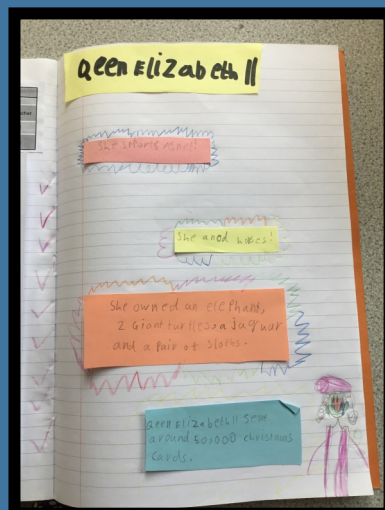 Qeen Elizabeth II
She
She anod hoses!
She owned an elephant,
2 Giant turtles, a juguar
and a pair of Sloths.
Qeen Elizabeth II Sent
around 50,000 christmas
cards.